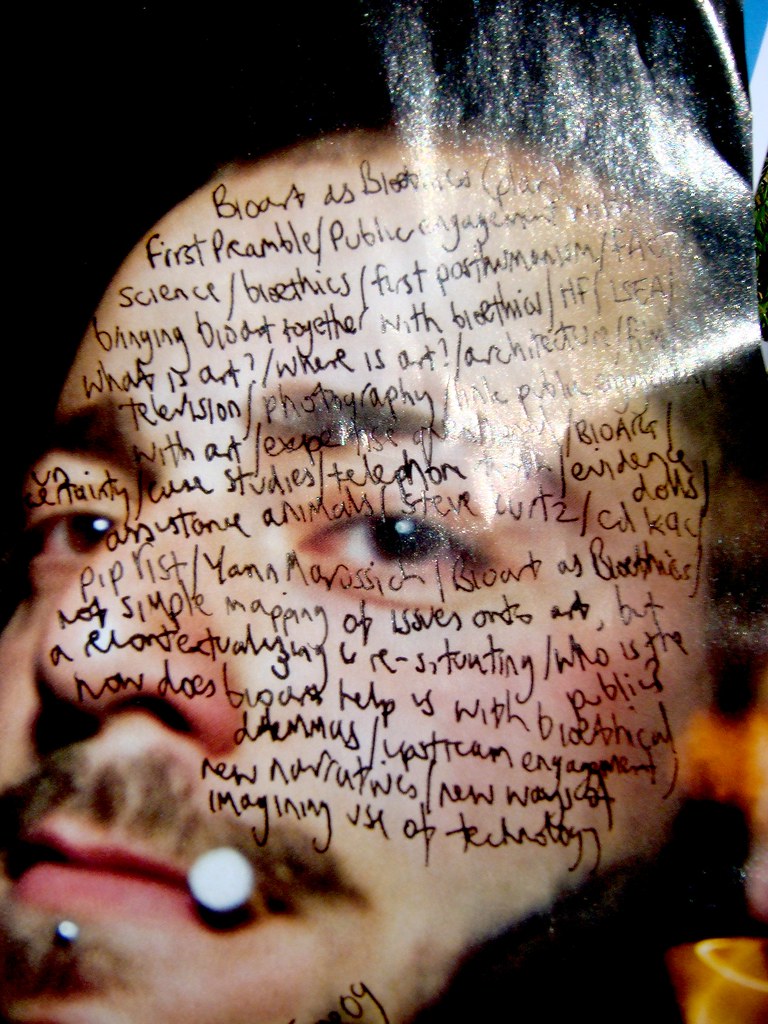 Bioart as Bioethics (plan
First Preamble/Public engagement with
science/bioethics/first posthumanism/FACT
bringing bioart together with bioethics/HF(ISEA)
what is art?/where is art?/architecture/film
television/photography/link public engagement
with art/expertise /BIOART/
certainty/case studies/telephone /evidence
dolls/
assistance animals/Steve Kurtz/Ed Kac/
pip rist/Yann Marussich/Bioart as Bioethics/
not simple mapping of issues onto art, but
a recontextualizing & re-situating/who is the
public?
how does bioart help us with bioethical
dilemmas/upstream engagement/
new narratives/new ways of
imagining use of technology